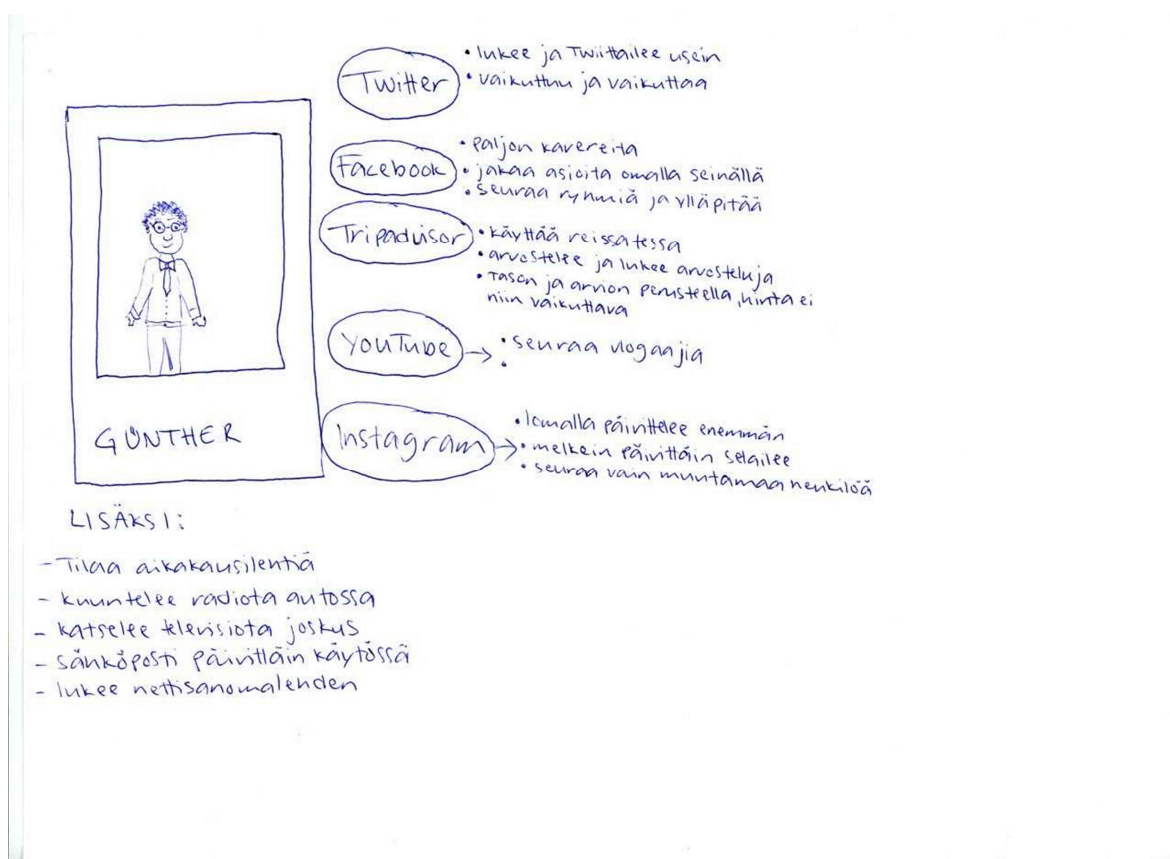 Twitter
• lukee ja Twiittailee usein
• vaikuttuu ja vaikuttaa
Facebook
• paljon kavereita
• jakaa asioita omalla seinällä
• seuraa ryhmiä ja ylläpitää
Tripadvisor
• käyttää reissatessa
• arvostelee ja lukee arvosteluja
• Tason ja arvion perusteella, hinta ei
niin vaikuttava
YouTube → • seuraa vlogaajia
•
Instagram →
• lomalla päivittelee enemmän
• melkein päivittäin selailee
• seuraa vain muutamaa henkilöä
GÜNTHER
LISÄKSI:
- Tilaa aikakausilehtiä
- kuuntelee radiota autossa
- katselee televisiota joskus
- sähköposti päivittäin käytössä
- lukee nettisanomalehden